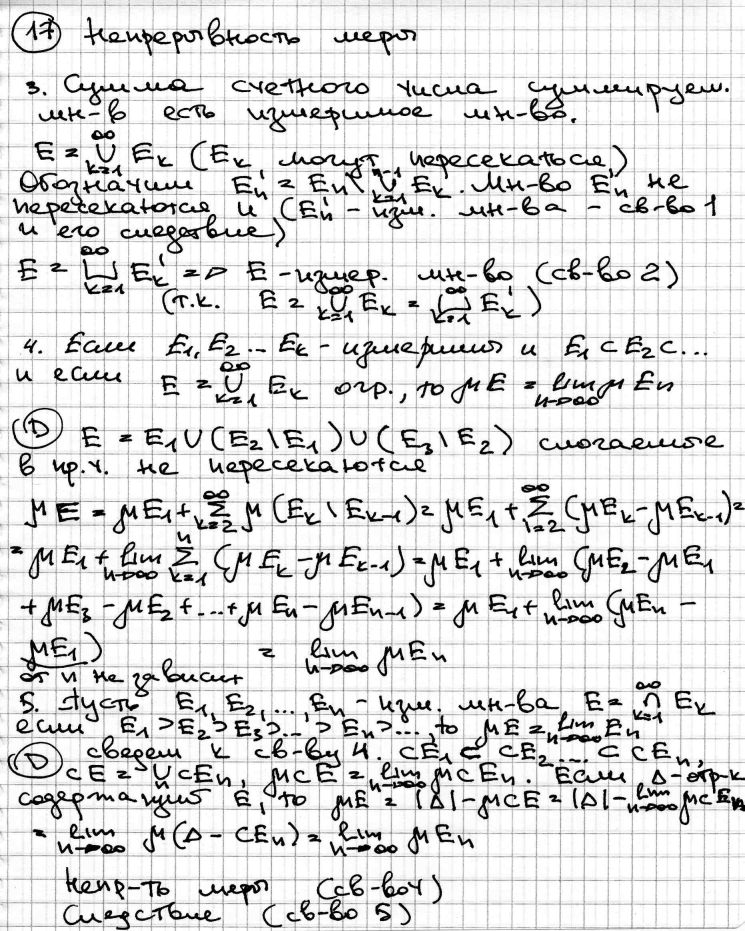 17 Непрерывность меры
3. Сумма счетного числа суммируем.
мн-в есть измеримое мн-во.
E = ∞∪k=1 Ek (Ek могут пересекаться)
Обозначим E'n = En \ n-1∪k=1 Ek. Мн-во E'n не
пересекаются и (E'n - изм. мн-ва - св-во 1
и его следствие)
E = ∞⊔k=1 E'k => E - измер. мн-во (св-во 2)
(т.к. E = ∞∪k=1 Ek = ∞⊔k=1 E'k)
4. Если E1, E2 ... Ek - измеримы и E1 ⊂ E2 ⊂ ...
и если E = ∞∪k=1 Ek огр., то μE = lim n→∞ μEn
D E = E1 ∪ (E2 \ E1) ∪ (E3 \ E2) слогаемые
в пр.ч. не пересекаются
μE = μE1 + ∞∑k=2 μ(Ek \ Ek-1) = μE1 + ∞∑i=2 (μEk - μEk-1) =
= μE1 + lim n→∞ n∑k=1 (μEk - μEk-1) = μE1 + lim n→∞ (μE2 - μE1
+ μE3 - μE2 + ... + μEn - μEn-1) = μE1 + lim n→∞ (μEn -
μE1) = lim n→∞ μEn
от n не зависит
5. Пусть E1, E2, ..., En - изм. мн-ва E = ∞∩k=1 Ek
если E1 ⊃ E2 ⊃ E3 ⊃ ... ⊃ En ⊃ ..., то μE = lim n→∞ En
D сведем к св-ву 4. CE1 ⊂ CE2 ... ⊂ CEn,
CE = ∪n CEn, μCE = lim n→∞ μCEn. Если Δ - отр-к
содержащий E, то μE = |Δ| - μCE = |Δ| - lim n→∞ μCEn
= lim n→∞ μ(Δ - CEn) = lim n→∞ μEn
Непр-ть меры (св-во 4)
Следствие (св-во 5)